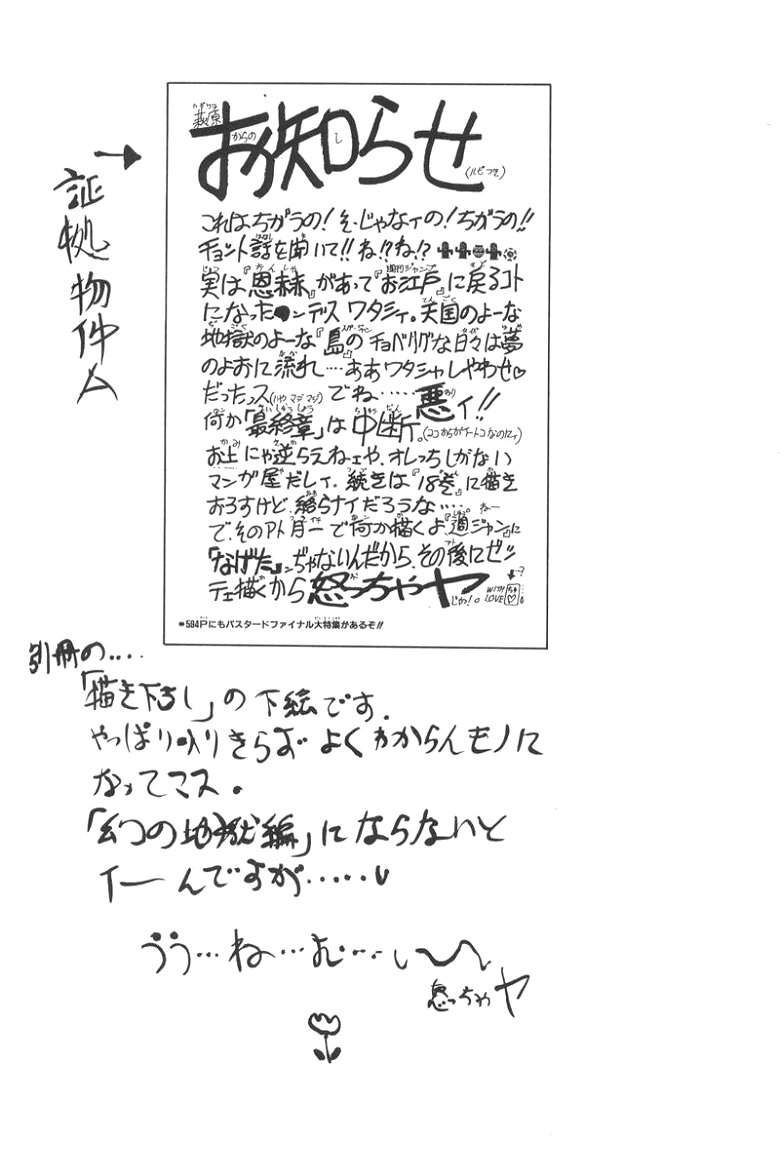 萩原からの
お知らせ
(ルビつき)
これはちがうの！そ・じゃなィの！ちがうの!!
チョット話を聞いて!!ね!?ね!?
実は『恩赦』があって『お江戸』に戻るコト
になった ンデス ワタシィ。天国のよーな
地獄のよーな『島』の チョベリグな日々は夢
のよおに流れ……ああワタシャしやわせ♡
だったっス(ハヤ マジ マジ) でね……悪ィ!!
何か「最終章」は中断。(ココからがイートコなのにィ)
お上にゃ逆らえねェや、オレっちしがない
マンガ屋だしィ、続きは『18巻』に描き
おろすけど、終らナイだろうな……
で、そのアト月一で何か描くよ『週ジャン』に
「なげた」んぢゃないんだから、その後にゼッ
テェ描くから 怒っちゃヤ じゃ！。 WITH LOVE
＊594Pにもバスタードファイナル大特集があるぞ!!
→
証拠物件A
別冊の‥‥
「描き下ろし」の下絵です.
やっぱり入りきらず よくわからんモノに
なってマス。
「幻の地獄編」にならないと
イーんですが‥‥‥
うう…ね…む…い〜
怒っちゃヤ